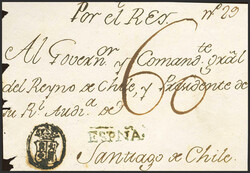 Por el Rey. nº 29
Al Governor. y Comandte. gral
del Reyno de Chile, y Presidente de
su Rl. Audia. de
60
ESPAÑA.
Santiago de Chile.